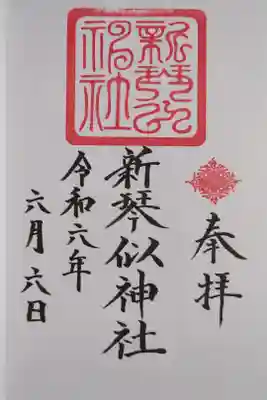 奉拝
新琴似神社
新琴似神社
令和六年
六月六日